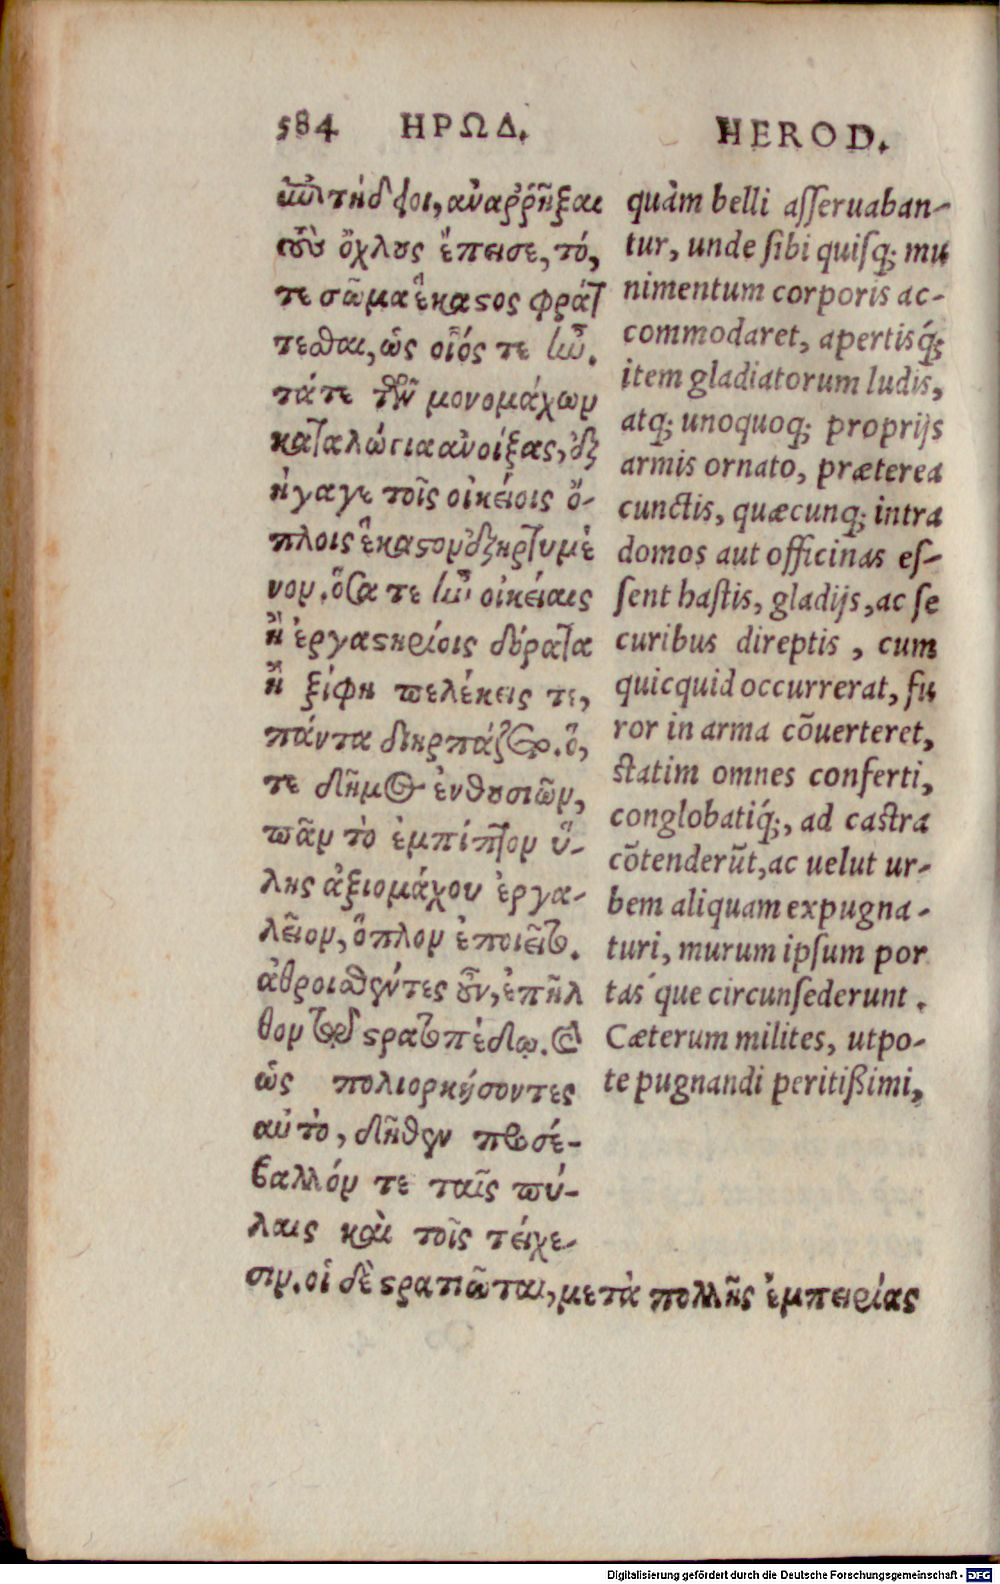 584 ΗΡΩΔ.
ἐπιτήδειοι, ἀναῤῥῆξαι
τοὺς ὄχλους ἔπεισε, τό,
τε σῶμα ἕκαστος φράτ
τεσθαι, ὡς οἷός τε ἦν.
τά τε τῶν μονομάχων
καταγώγια ἀνοίξας, ἐξ
ήγαγε τοῖς οἰκείοις ὅ-
πλοις ἕκαστον ἐξηρτυμέ
νον. ὅσα τε ἦν οἰκείαις
ἢ ἐργαστηρίοις δόρατα
ἢ ξίφη πελέκεις τε,
πάντα διηρπάζετο. ὅ,
τε δῆμος ἐνθουσιῶν,
πᾶν τὸ ἐμπίπτον ὕ-
λης ἀξιομάχου ἐργα-
λεῖον, ὅπλον ἐποιεῖτο.
ἀθροισθέντες οὖν, ἐπῆλ
θον τῷ στρατοπέδῳ. καὶ
ὡς πολιορκήσοντες
αὐτό, δῆθεν προσέ-
βαλλόν τε ταῖς πύ-
λαις καὶ τοῖς τείχε-
σιν. οἱ δὲ στρατιῶται, μετὰ πολλῆς ἐμπειρίας
HEROD.
quàm belli asseruaban-
tur, unde sibi quisq; mu
nimentum corporis ac-
commodaret, apertisq́;
item gladiatorum ludis,
atq; unoquoq; proprijs
armis ornato, præterea
cunctis, quæcunq; intra
domos aut officinas es-
sent hastis, gladijs, ac se
curibus direptis, cum
quicquid occurrerat, fu
ror in arma cõuerteret,
statim omnes conferti,
conglobatiq́;, ad castra
cõtenderũt, ac uelut ur-
bem aliquam expugna-
turi, murum ipsum por
tas´que circunsederunt.
Cæterum milites, utpo-
te pugnandi peritißimi,
Digitalisierung gefördert durch die Deutsche Forschungsgemeinschaft - DFG